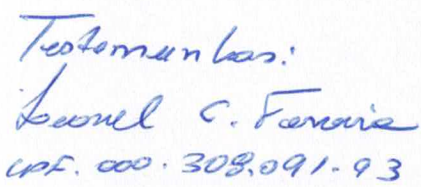 Testemunhas:
Leonel C. Faria
CPF. 000.308.091-93